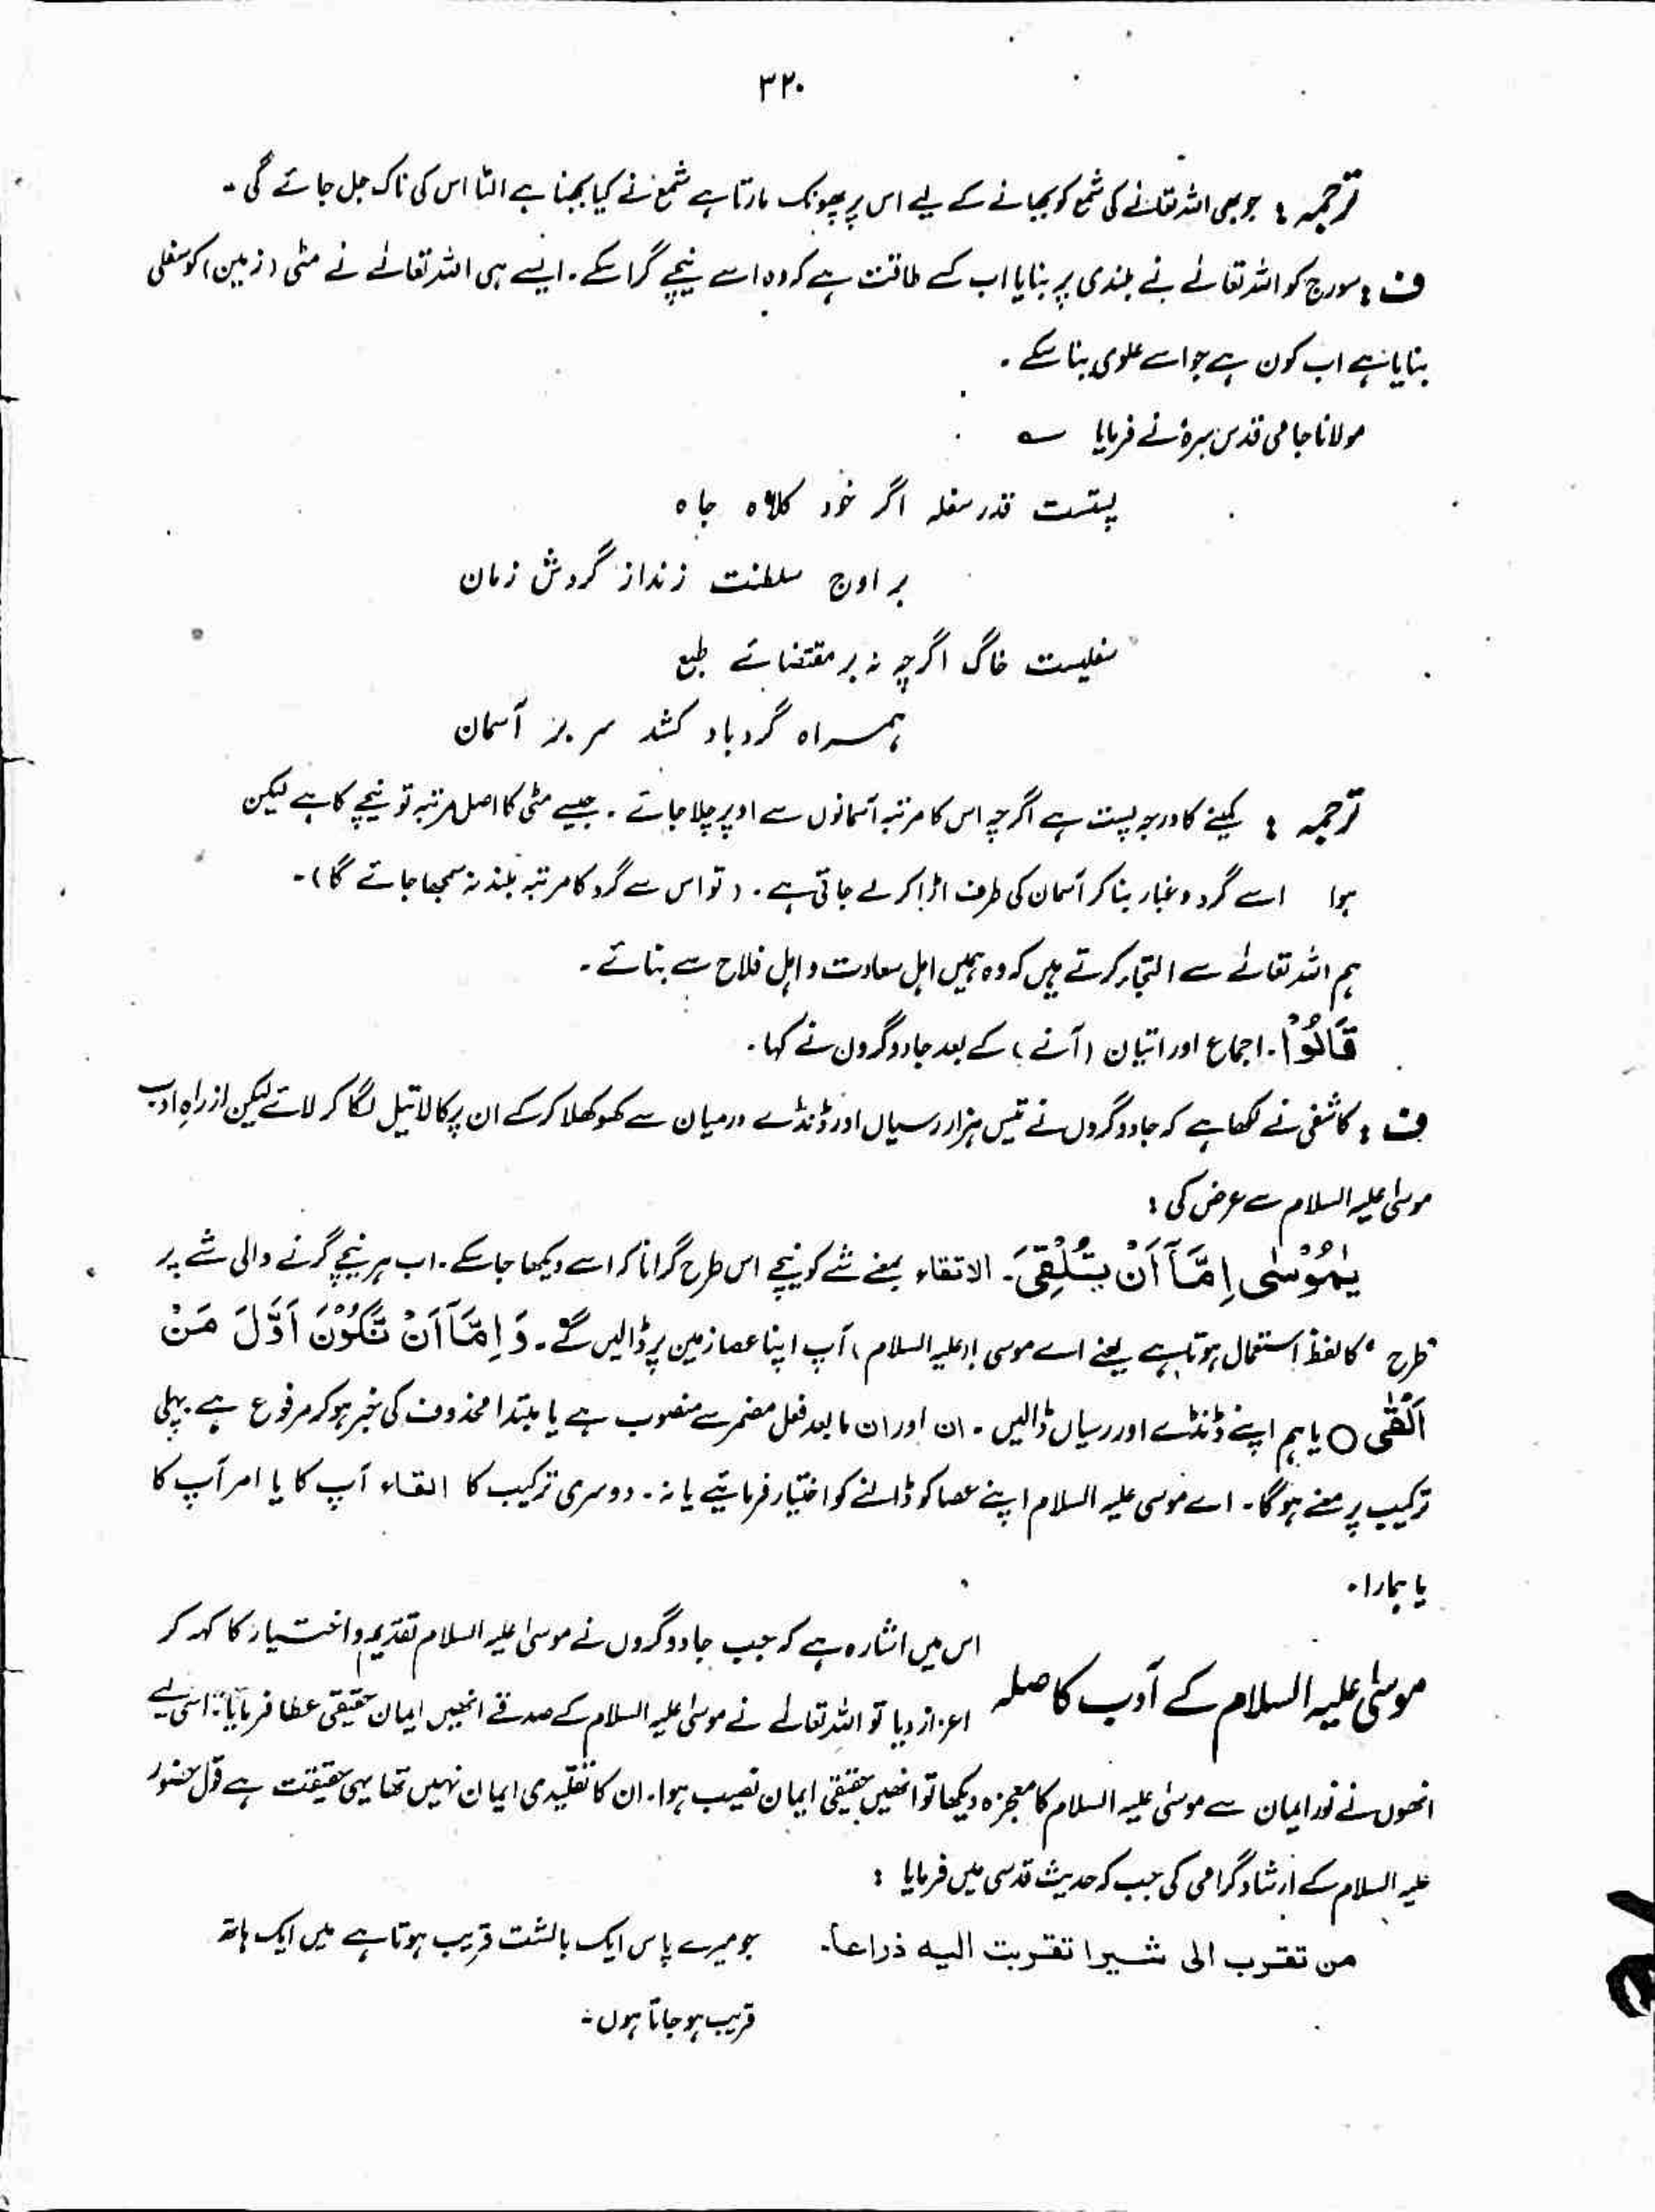 ۳۲۰
ترجمہ : جو بھی اللہ تعالےٰ کی شمع کو بجھانے کے لیے اس پر پھونک مارتا ہے شمع نے کیا بجھنا ہے الٹا اس کی ناک جل جائے گی ۔
ف : سورج کو اللہ تعالےٰ نے بلندی پر بنایا اب کسے طاقت ہے کہ وہ اسے نیچے گرا سکے ۔ ایسے ہی اللہ تعالےٰ نے مٹی (زمین) کو سفلی
بنایا ہے اب کون ہے جو اسے علوی بنا سکے ۔
مولانا جامی قدس سرہٗ نے فرمایا ؎
پستست قدر سفلہ اگر خود کلاہ جاہ
بر اوج سلطنت زند از گردش زمان
سفلیست خاک اگرچہ نہ بر مقتضائے طبع
ہمراہ گردباد کشد سر بر آسمان
ترجمہ : کمینے کا درجہ پست ہے اگرچہ اس کا مرتبہ آسمانوں سے اوپر چلا جائے ۔ جیسے مٹی کا اصل مرتبہ تو نیچے کا ہے لیکن
ہوا اسے گرد و غبار بنا کر آسمان کی طرف اڑا کر لے جاتی ہے ۔ (تو اس سے گرد کا مرتبہ بلند نہ سمجھا جائے گا)۔
ہم اللہ تعالےٰ سے التجا کرتے ہیں کہ وہ ہمیں اہل سعادت و اہل فلاح سے بنائے ۔
قَالُوْا ۔ اجماع اور اتیان (آنے) کے بعد جادوگروں نے کہا ۔
ف : کاشفی نے لکھا ہے کہ جادوگروں نے تیس ہزار رسیاں اور ڈنڈے درمیان سے کھوکھلا کر کے ان پر کالا تیل لگا کر لائے لیکن از راہِ ادب
موسیٰ علیہ السلام سے عرض کی :
یٰمُوْسٰی اِمَّاۤ اَنْ تُلْقِیَ ۔ الاتقاء بمعنے شے کو نیچے اس طرح گرانا کہ اسے دیکھا جا سکے ۔ اب ہر نیچے گرنے والی شے پر
"طرح" کا لفظ استعمال ہوتا ہے یعنے اے موسی (علیہ السلام) آپ اپنا عصا زمین پر ڈالیں گے ۔ وَ اِمَّاۤ اَنْ نَّكُوْنَ اَوَّلَ مَنْ
اَلْقٰی ○ یا ہم اپنے ڈنڈے اور رسیاں ڈالیں ۔ ان اور ان ما بعد فعل مضمر سے منصوب ہے یا مبتدا محذوف کی خبر ہو کر مرفوع ہے ۔ پہلی
ترکیب پر معنے ہوگا ۔ اے موسی علیہ السلام اپنے عصا کو ڈالنے کو اختیار فرمائیے یا نہ ۔ دوسری ترکیب کا القاء آپ کا یا امر آپ کا
یا ہمارا ۔
موسیٰ علیہ السلام کے آدب کا صلہ
اس میں اشارہ ہے کہ جب جادوگروں نے موسیٰ علیہ السلام تقدیم و اختیار کا کہہ کر
اعزاز دیا تو اللہ تعالےٰ نے موسیٰ علیہ السلام کے صدقے انھیں ایمان حقیقی عطا فرمایا ۔ اسی لیے
انھوں نے نور ایمان سے موسیٰ علیہ السلام کا معجزہ دیکھا تو انھیں حقیقی ایمان نصیب ہوا ۔ ان کا تقلیدی ایمان نہیں تھا یہی حقیقت ہے قول حضور
علیہ السلام کے ارشاد گرامی کی جب کہ حدیث قدسی میں فرمایا :
من تقرب الی شبرا تقربت الیہ ذراعا ۔ جو میرے پاس ایک بالشت قریب ہوتا ہے میں ایک ہاتھ
قریب ہو جاتا ہوں ۔